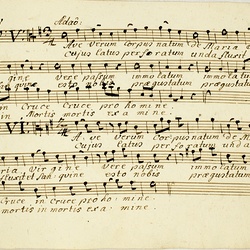 V. Adaõ:
Ave verum corpus natum de Maria
Cujus latus perforatum unda fluxit
gine vere passum immolatum
quine esto nobis prægustatum
in Cruce Cruce pro homine.
in mortis mortis examine.
VI. A. ve verum Corpus natum de
Cujus latus perforatum unda
ria Virgine Vere passum immolatum
fluxit san: quine esto nobis prægustatum
Cruce, in cruce pro ho: mine.
mortis in mortis exa: mine.